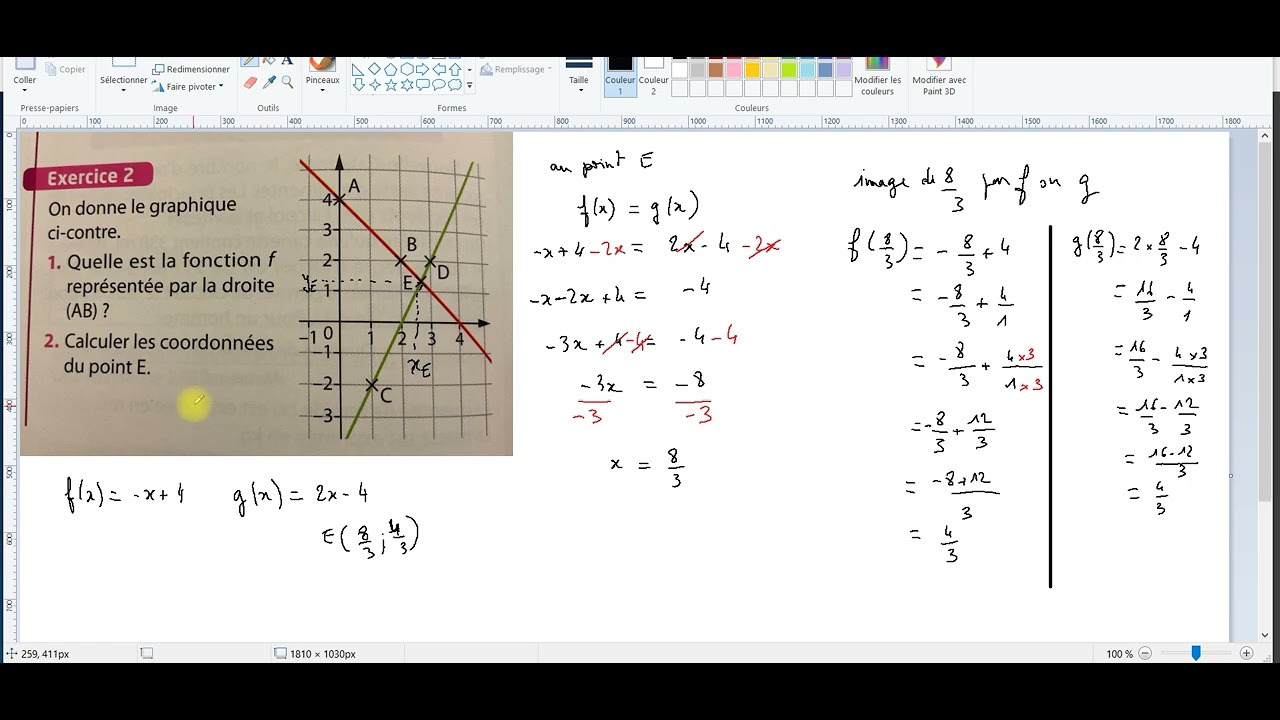 Coller
Copier
Sélectionner
Redimensionner
Faire pivoter
A
Pinceaux
Remplissage
Taille
Couleur 1
Couleur 2
Modifier les couleurs
Modifier avec Paint 3D
Presse-papiers
Image
Outils
Formes
Couleurs
0 100 200 300 400 500 600 700 800 900 1000 1100 1200 1300 1400 1500 1600 1700 1800
0
100
200
300
400
500
600
700
Exercice 2
On donne le graphique
ci-contre.
1. Quelle est la fonction f
représentée par la droite
(AB) ?
2. Calculer les coordonnées
du point E.
A
4
3
B
2
D
E
yE
1
-1 0 1 2 3 4
-1
xE
-2
C
-3
f(x) = -x+4
g(x) = 2x-4
E(8/3; 4/3)
au point E
f(x) = g(x)
-x+4-2x = 2x-4-2x
-x-2x+4 = -4
-3x+4-4 = -4-4
-3x/-3 = -8/-3
x = 8/3
image de 8/3 par f ou g
f(8/3) = -8/3+4
= -8/3+4/1
= -8/3+4×3/1×3
= -8/3+12/3
= -8+12/3
= 4/3
g(8/3) = 2×8/3-4
= 16/3-4/1
= 16/3-4×3/1×3
= 16/3-12/3
= 16-12/3
= 4/3
259, 411px
1810 × 1030px
100 %